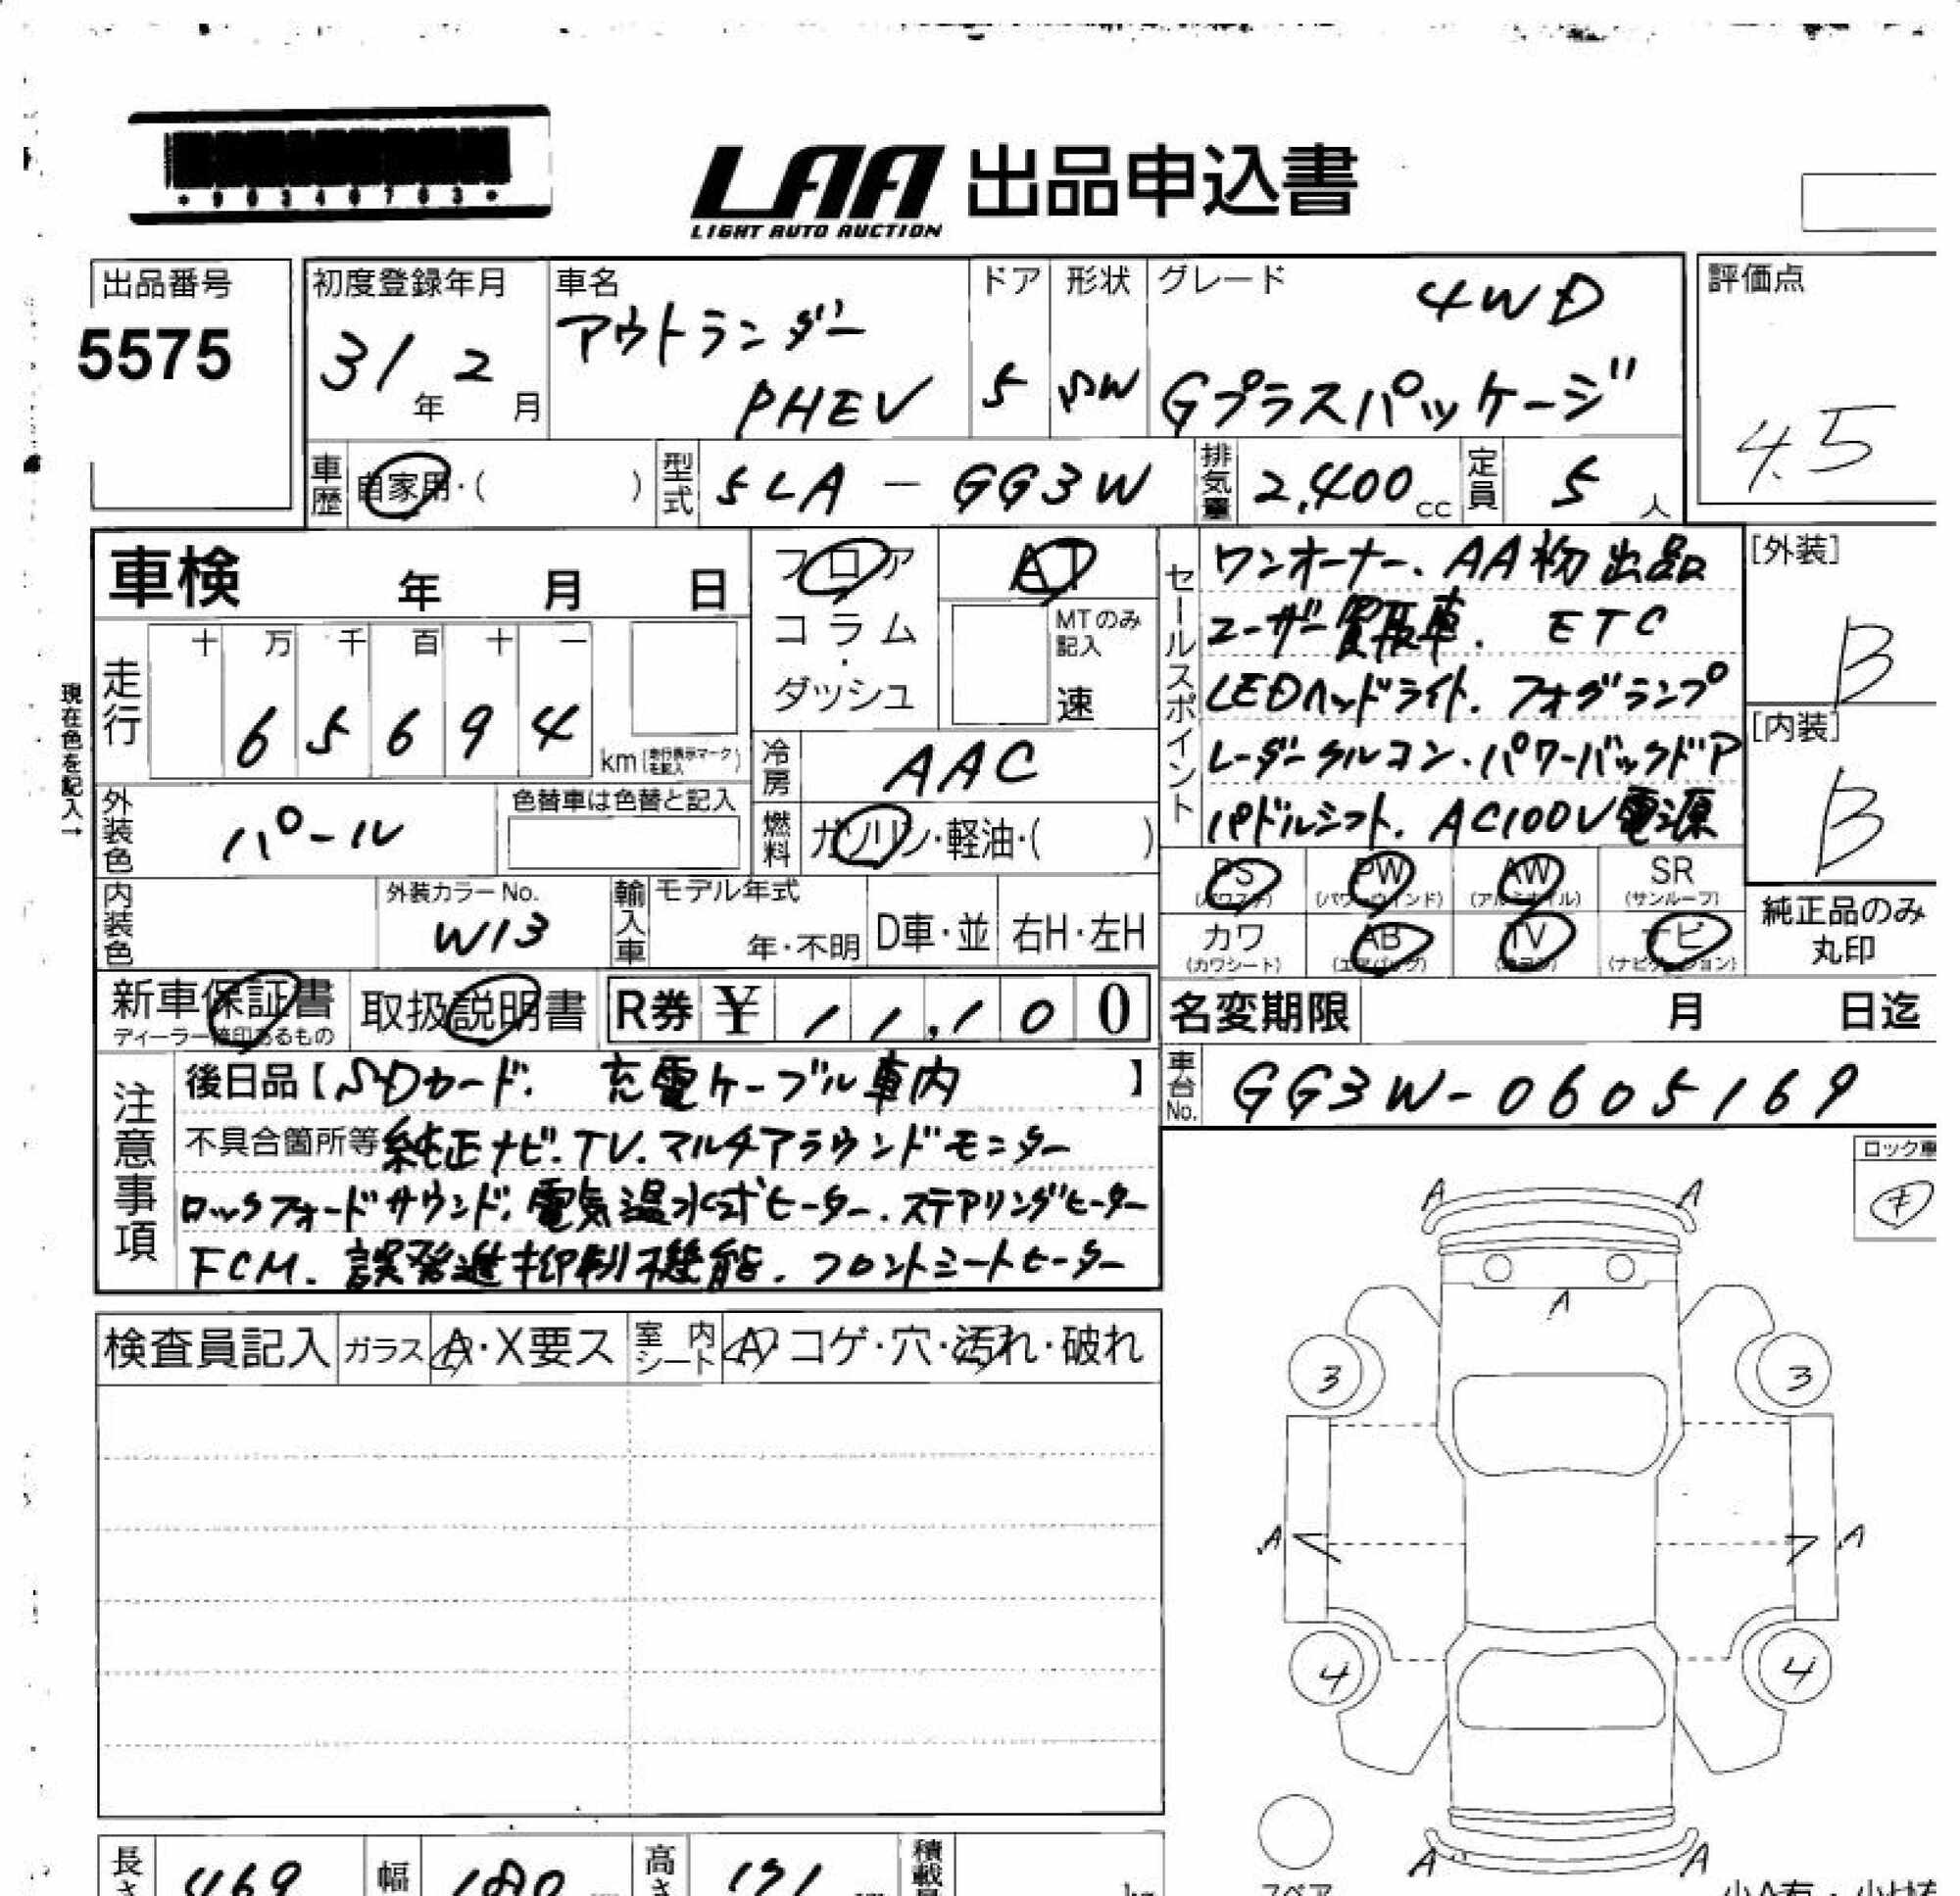 LAA 出品申込書
LIGHT AUTO AUCTION
出品番号
5575
初度登録年月
31年 2月
車名
アウトランダー
PHEV
ドア
5
形状
SW
グレード
4WD
Gプラスパッケージ
評価点
4.5
車歴 自家用・( )
型式 5LA-GG3W
排気量 2,400cc
定員 5人
車検 年 月 日
フロア
コラム
・
ダッシュ
AT
MTのみ
記入
速
現在色を記入→
走行
十 万 千 百 十 一
6 5 6 9 4
km(走行表示マークを記入)
冷房 AAC
燃料 ガソリン・軽油・( )
外装色 パール
色替車は色替と記入
内装色
外装カラーNo.
W13
輸入車 モデル年式
年・不明
D車・並
右H・左H
セールスポイント
ワンオーナー、AA初出品
ユーザー買取車、ETC
LEDヘッドライト、フォグランプ
レーダークルコン、パワーバックドア
パドルシフト、AC100V電源
[外装]
B
[内装]
B
PS(パワステ) PW(パワーウインド) AW(アルミホイル) SR(サンルーフ)
カワ(カワシート) AB(エアバッグ) TV(テレビ) ナビ(ナビゲーション)
純正品のみ
丸印
新車保証書
ディーラー捺印あるもの
取扱説明書
R券 ¥11,100
名変期限 月 日迄
注意事項
後日品【SDカード、充電ケーブル車内】
不具合箇所等 純正ナビ、TV、マルチアラウンドモニター
ロックフォードサウンド、電気温水式ヒーター、ステアリングヒーター
FCM、誤発進抑制機能、フロントシートヒーター
車台No. GG3W-0605169
検査員記入
ガラス A・X要ス
室内シート A・コゲ・穴・汚れ・破れ
A A
A
3 3
A A
4 4
A A
長さ 469
幅 180
高さ 171
スペア